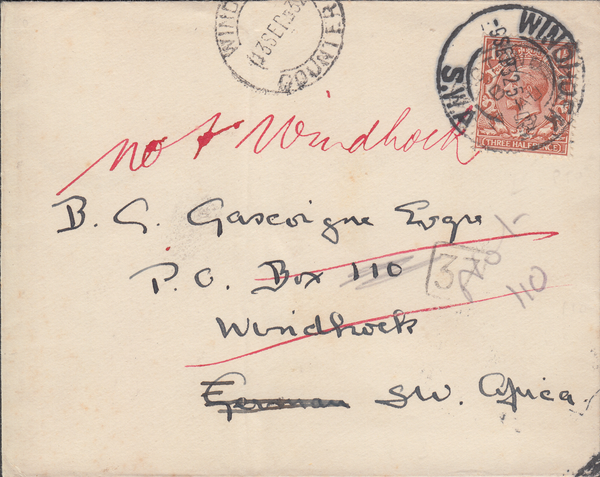 WINDHUK
COUNTER
WINDHUK
S.W.A.
THREE HALFPENCE
not Windhoek
B. G. Gascoigne Esqre
P.O. Box 110
3
Box
110
Windhoek
German S.W. Africa.